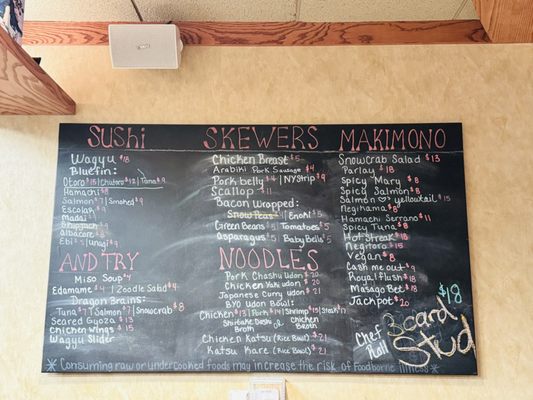 SUSHI
Wagyu $18
Bluefin:
Otoro $15 | Chutoro $12 | Tuna $9
Hamachi $8
Salmon $7 | Smoked $9
Escolar $9
Madai
Albacore $8
Ebi $5 | Unagi $9
AND TRY
Miso Soup $4
Edamame $4 | Zoodle Salad $4
Dragon Brains:
Tuna $7 | Salmon $7 | Snowcrab $8
Seared Gyoza $13
Chicken Wings $15
Wagyu Slider
SKEWERS
Chicken Breast $5
Arabiki Pork Sausage $4
Pork belly $4 | NY Strip $9
Scallop $11
Bacon Wrapped:
Snow Peas | Enoki $5
Green Beans $5 | Tomatoes $5
Asparagus $5 | Baby Bells $5
NOODLES
Pork Chashu Udon $20
Chicken Yaki udon $20
Japanese Curry udon $21
BYO Udon Bowl:
Chicken $13 | Pork $14 | Shrimp $15 | Steak
Shiitake Dashi or Chicken
Broth Broth
Chicken Katsu (Rice Bowl) $21
Katsu Kare (Rice Bowl) $21
MAKIMONO
Snowcrab Salad $13
Parlay $18
Spicy Mary $8
Spicy Salmon $8
Salmon yellowtail $15
Negihama $8
Hamachi Serrano $11
Spicy Tuna $8
Hot Streak $18
Negitoro $15
Vegan $8
Cash me out $9
Royal flush $18
Masago Bet $18
Jackpot $20
Chef Board $18
Roll Stud
*Consuming raw or undercooked foods may increase the risk of foodborne illness*